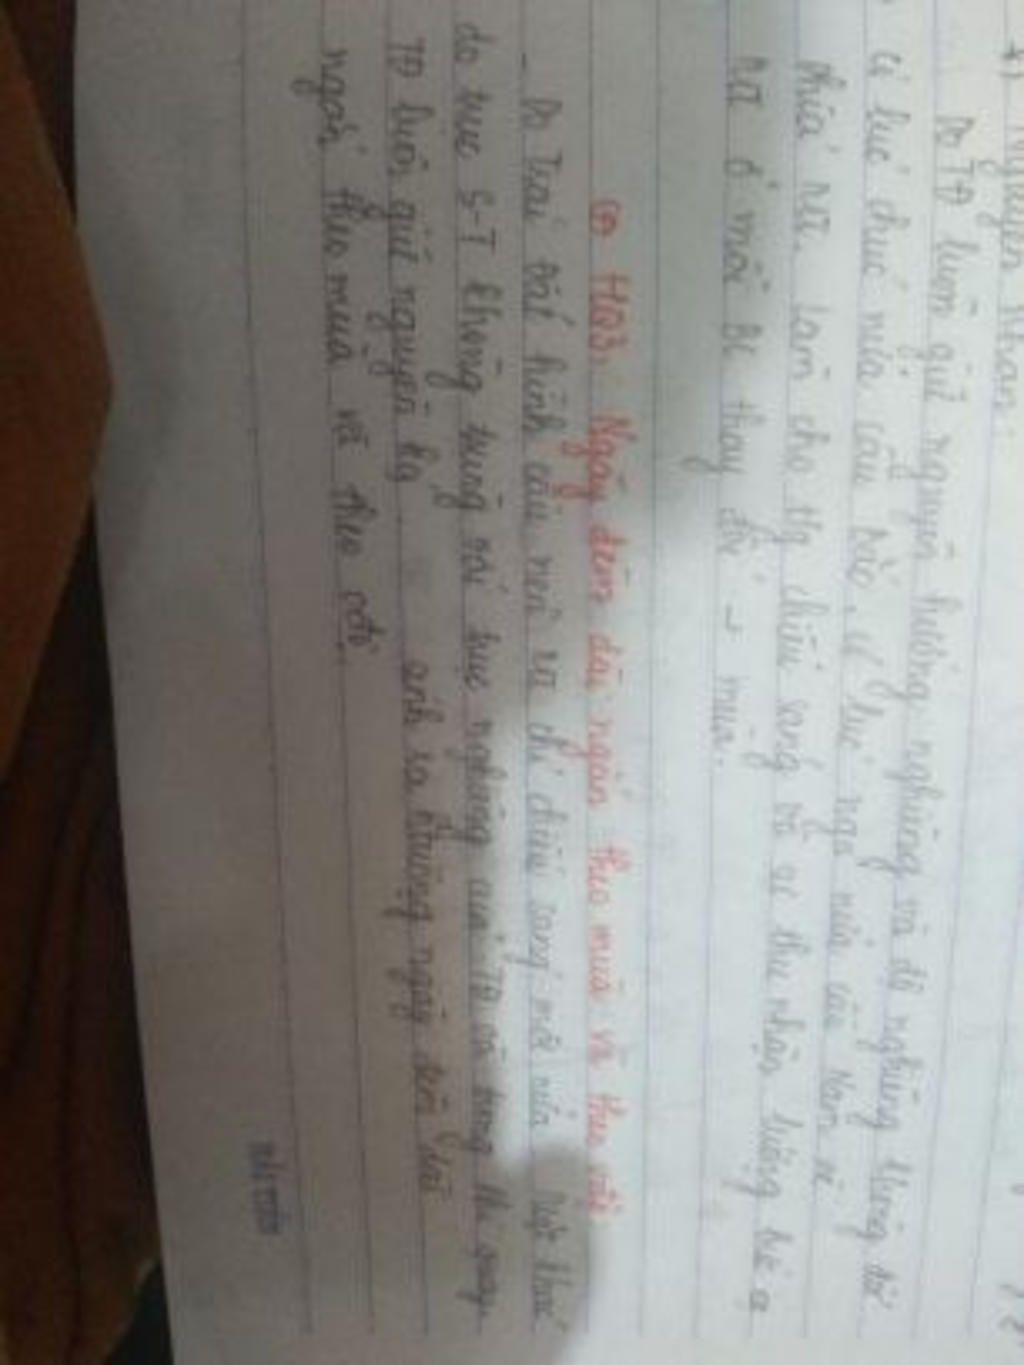 Nguyên nhân:
Do TĐ luôn giữ nguyên hướng nghiêng và độ nghiêng không đổi
có lúc chúc nửa cầu Bắc, có lúc ngả nửa cầu Nam về
phía MT. Làm cho tg chiếu sáng và sự thu nhận lượng
MT ở mỗi BC thay đổi → mùa.
HQ3. Ngày đêm dài ngắn theo mùa và theo vĩ độ
- Do Trái Đất hình cầu nên MT chỉ chiếu sáng một nửa
do trục S-T không trùng với trục nghiêng của TĐ và trong khi quay
TĐ luôn giữ nguyên ánh sa htượng ngày đêm dài
ngắn theo mùa và theo vĩ độ.